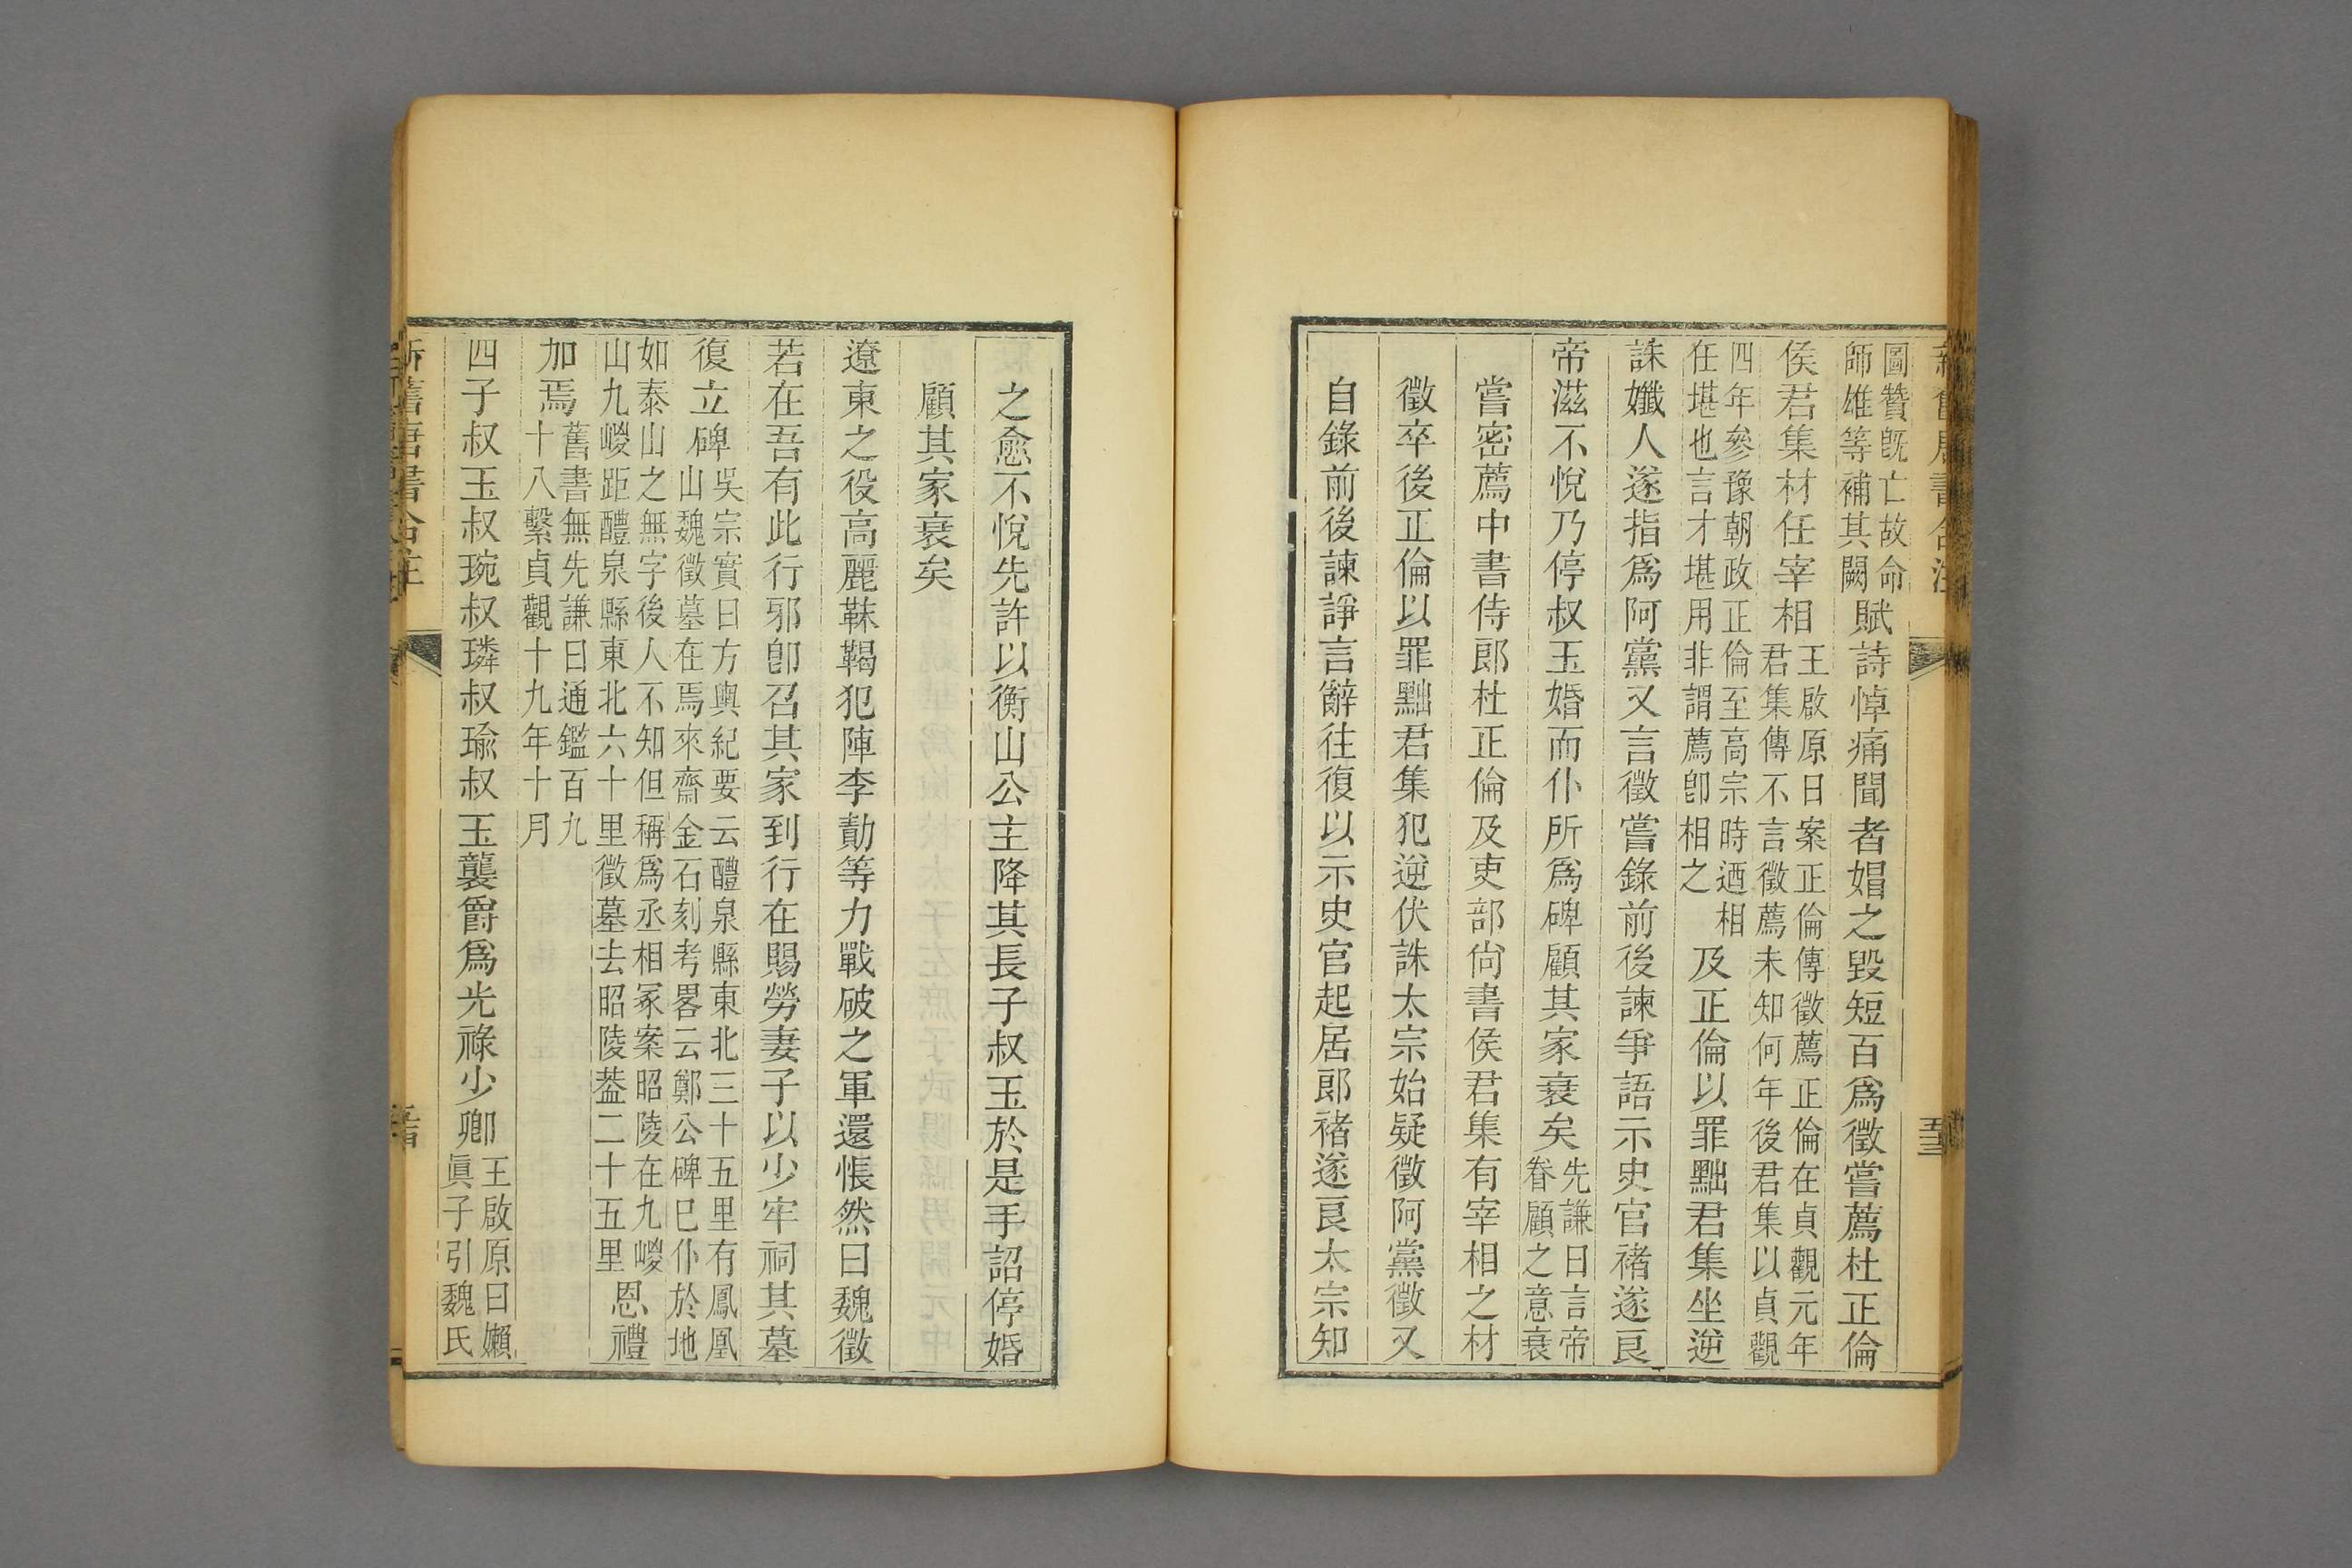 圖贊旣亡故命
師雄等補其闕
賦詩悼痛聞者媢之毀短百爲徵嘗薦杜正倫
侯君集材任宰相
王啟原曰案正倫傳徵薦正倫在貞觀元年
君集傳不言徵薦未知何年後君集以貞觀
四年參豫朝政正倫至高宗時迺相
任堪也言才堪用非謂薦卽相之
及正倫以罪黜君集坐逆
誅孅人遂指爲阿黨又言徵嘗錄前後諫爭語示史官褚遂良
帝滋不悅乃停叔玉婚而仆所爲碑顧其家衰矣
先謙曰言帝
眷顧之意衰
嘗密薦中書侍郎杜正倫及吏部尙書侯君集有宰相之材
徵卒後正倫以罪黜君集犯逆伏誅太宗始疑徵阿黨徵又
自錄前後諫諍言辭往復以示史官起居郎褚遂良太宗知
五十三
之愈不悅先許以衡山公主降其長子叔玉於是手詔停婚
顧其家衰矣
遼東之役高麗靺鞨犯陣李勣等力戰破之軍還悵然曰魏徵
若在吾有此行邪卽召其家到行在賜勞妻子以少牢祠其墓
復立碑
吳宗實曰方輿紀要云醴泉縣東北三十五里有鳳凰
山魏徵墓在焉來齋金石刻考畧云鄭公碑已仆於地
如泰山之無字後人不知但稱爲丞相冢案昭陵在九嵕
山九嵕距醴泉縣東北六十里徵墓去昭陵葢二十五里
恩禮
加焉
舊書無先謙曰通鑑百九
十八繫貞觀十九年十月
四子叔玉叔琬叔璘叔瑜叔玉襲爵爲光祿少卿
王啟原曰嬾
眞子引魏氏
新舊唐書合注